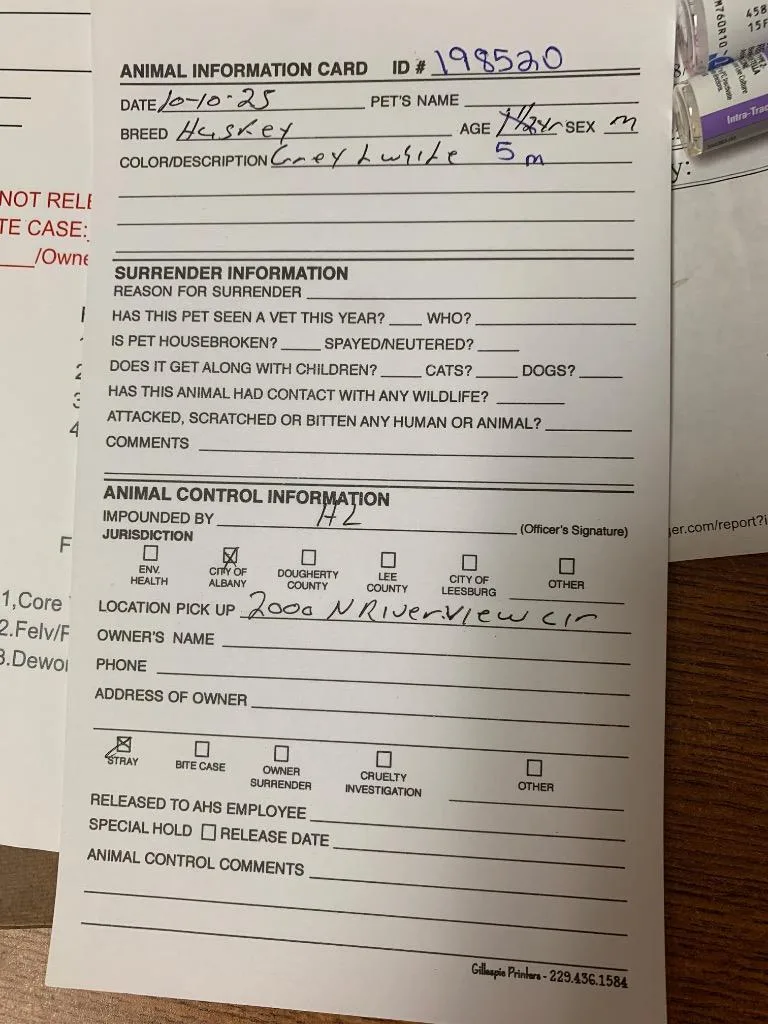 ANIMAL INFORMATION CARD ID # 198520
DATE 10-10-25 PET'S NAME
BREED Huskey AGE 1 1/2 yr SEX M
COLOR/DESCRIPTION Grey & white 5 m
SURRENDER INFORMATION
REASON FOR SURRENDER
HAS THIS PET SEEN A VET THIS YEAR? WHO?
IS PET HOUSEBROKEN? SPAYED/NEUTERED?
DOES IT GET ALONG WITH CHILDREN? CATS? DOGS?
HAS THIS ANIMAL HAD CONTACT WITH ANY WILDLIFE?
ATTACKED, SCRATCHED OR BITTEN ANY HUMAN OR ANIMAL?
COMMENTS
ANIMAL CONTROL INFORMATION
IMPOUNDED BY HL (Officer's Signature)
JURISDICTION
ENV. HEALTH CITY OF ALBANY DOUGHERTY COUNTY LEE COUNTY CITY OF LEESBURG OTHER
LOCATION PICK UP 2000 N Riverview cir
OWNER'S NAME
PHONE
ADDRESS OF OWNER
STRAY BITE CASE OWNER SURRENDER CRUELTY INVESTIGATION OTHER
RELEASED TO AHS EMPLOYEE
SPECIAL HOLD RELEASE DATE
ANIMAL CONTROL COMMENTS
Gillespie Printers - 229.436.1584
NOT RELE
TE CASE:
/Owne
1
2
3
4
F
1,Core
2.Felv/F
3.Dewor
M760R10
458
15F
Intra-Trac
y:
er.com/report?i